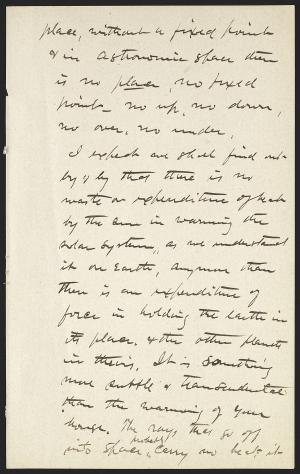 place, without a fixed point
& in Astronomic space there
is no place, no fixed
point - no up, no down,
no over, no under,
I expect we shall find out
by & by that there is no
waste or expenditure of heat
by the sun in warming the
solar system, as we understand
it on Earth, anymore than
there is an expenditure of
force in holding the earth in
its place, & the other planets
in theirs. It is something
more subtle & transcendental
than the warming of your
house. The rays that go off
into space, probably carry no heat, it